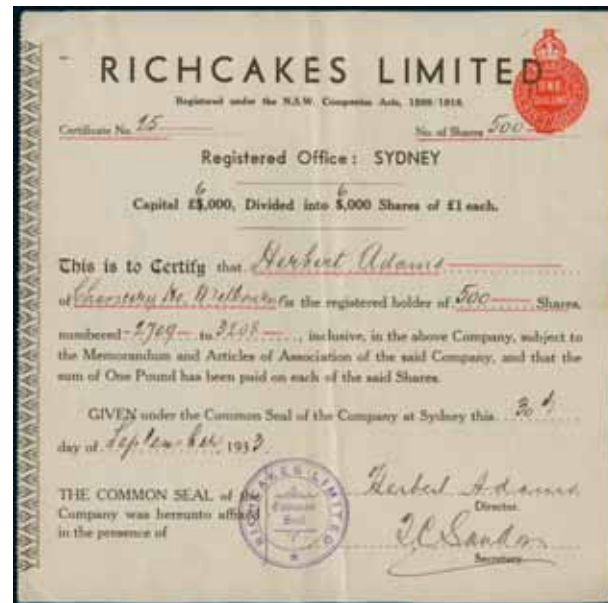 RICHCAKES LIMITED
ONE
Registered under the N.S.W. Companies Acts, 1899/1918.
Certificate No. 25
No. of Shares 500
Registered Office: SYDNEY
6 6
Capital £5,000, Divided into 5,000 Shares of £1 each.
This is to Certify that Herbert Adams
of Chancery Melbourne is the registered holder of 500 Shares,
numbered 2709 to 3208, inclusive, in the above Company, subject to
the Memorandum and Articles of Association of the said Company, and that the
sum of One Pound has been paid on each of the said Shares.
GIVEN under the Common Seal of the Company at Sydney this 30th
day of September, 1933.
THE COMMON SEAL of the
Company was hereunto affixed
in the presence of
RICHCAKES LIMITED
Common
Seal
Herbert Adams
Director.
Secretary.